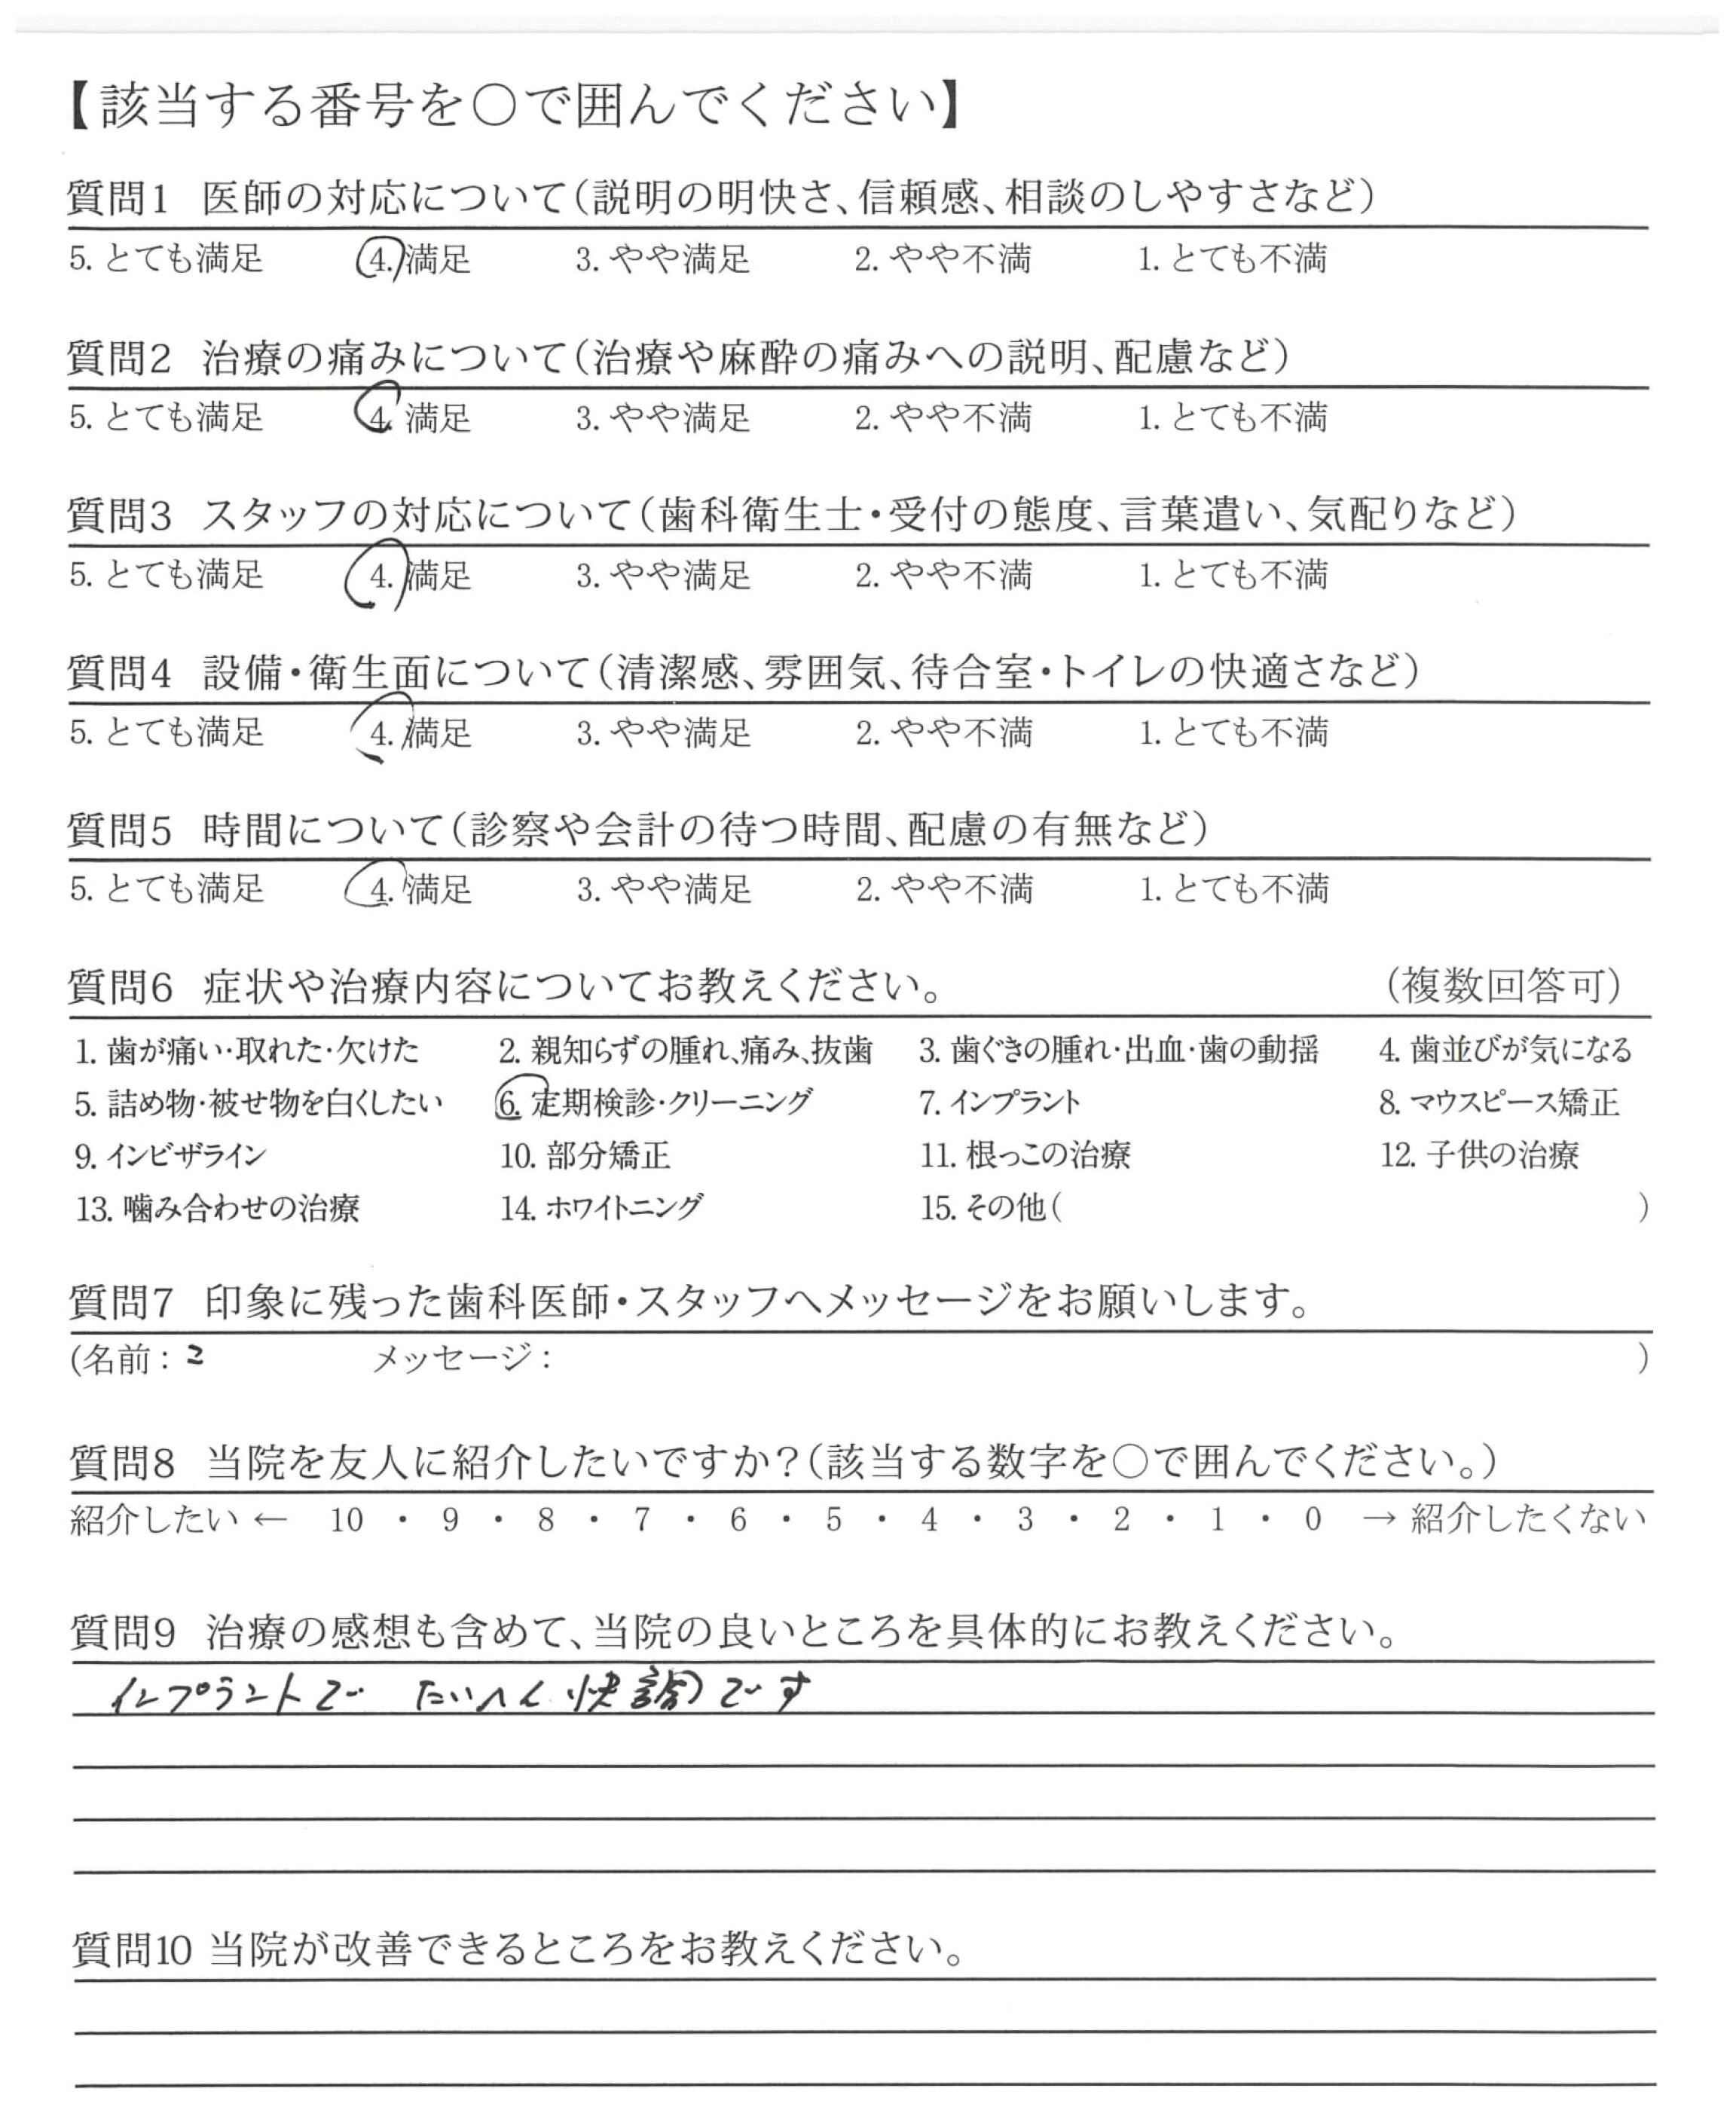 【該当する番号を○で囲んでください】
質問1 医師の対応について(説明の明快さ、信頼感、相談のしやすさなど)
5. とても満足 4. 満足 3. やや満足 2. やや不満 1. とても不満
質問2 治療の痛みについて(治療や麻酔の痛みへの説明、配慮など)
5. とても満足 4. 満足 3. やや満足 2. やや不満 1. とても不満
質問3 スタッフの対応について(歯科衛生士・受付の態度、言葉遣い、気配りなど)
5. とても満足 4. 満足 3. やや満足 2. やや不満 1. とても不満
質問4 設備・衛生面について(清潔感、雰囲気、待合室・トイレの快適さなど)
5. とても満足 4. 満足 3. やや満足 2. やや不満 1. とても不満
質問5 時間について(診察や会計の待つ時間、配慮の有無など)
5. とても満足 4. 満足 3. やや満足 2. やや不満 1. とても不満
質問6 症状や治療内容についてお教えください。 (複数回答可)
1. 歯が痛い・取れた・欠けた 2. 親知らずの腫れ、痛み、抜歯 3. 歯ぐきの腫れ・出血・歯の動揺 4. 歯並びが気になる
5. 詰め物・被せ物を白くしたい 6. 定期検診・クリーニング 7. インプラント 8. マウスピース矯正
9. インビザライン 10. 部分矯正 11. 根っこの治療 12. 子供の治療
13. 噛み合わせの治療 14. ホワイトニング 15. その他( )
質問7 印象に残った歯科医師・スタッフへメッセージをお願いします。
(名前: メッセージ: )
質問8 当院を友人に紹介したいですか?(該当する数字を○で囲んでください。)
紹介したい ← 10 ・ 9 ・ 8 ・ 7 ・ 6 ・ 5 ・ 4 ・ 3 ・ 2 ・ 1 ・ 0 → 紹介したくない
質問9 治療の感想も含めて、当院の良いところを具体的にお教えください。
インプラントで たいへん 快 です
質問10 当院が改善できるところをお教えください。